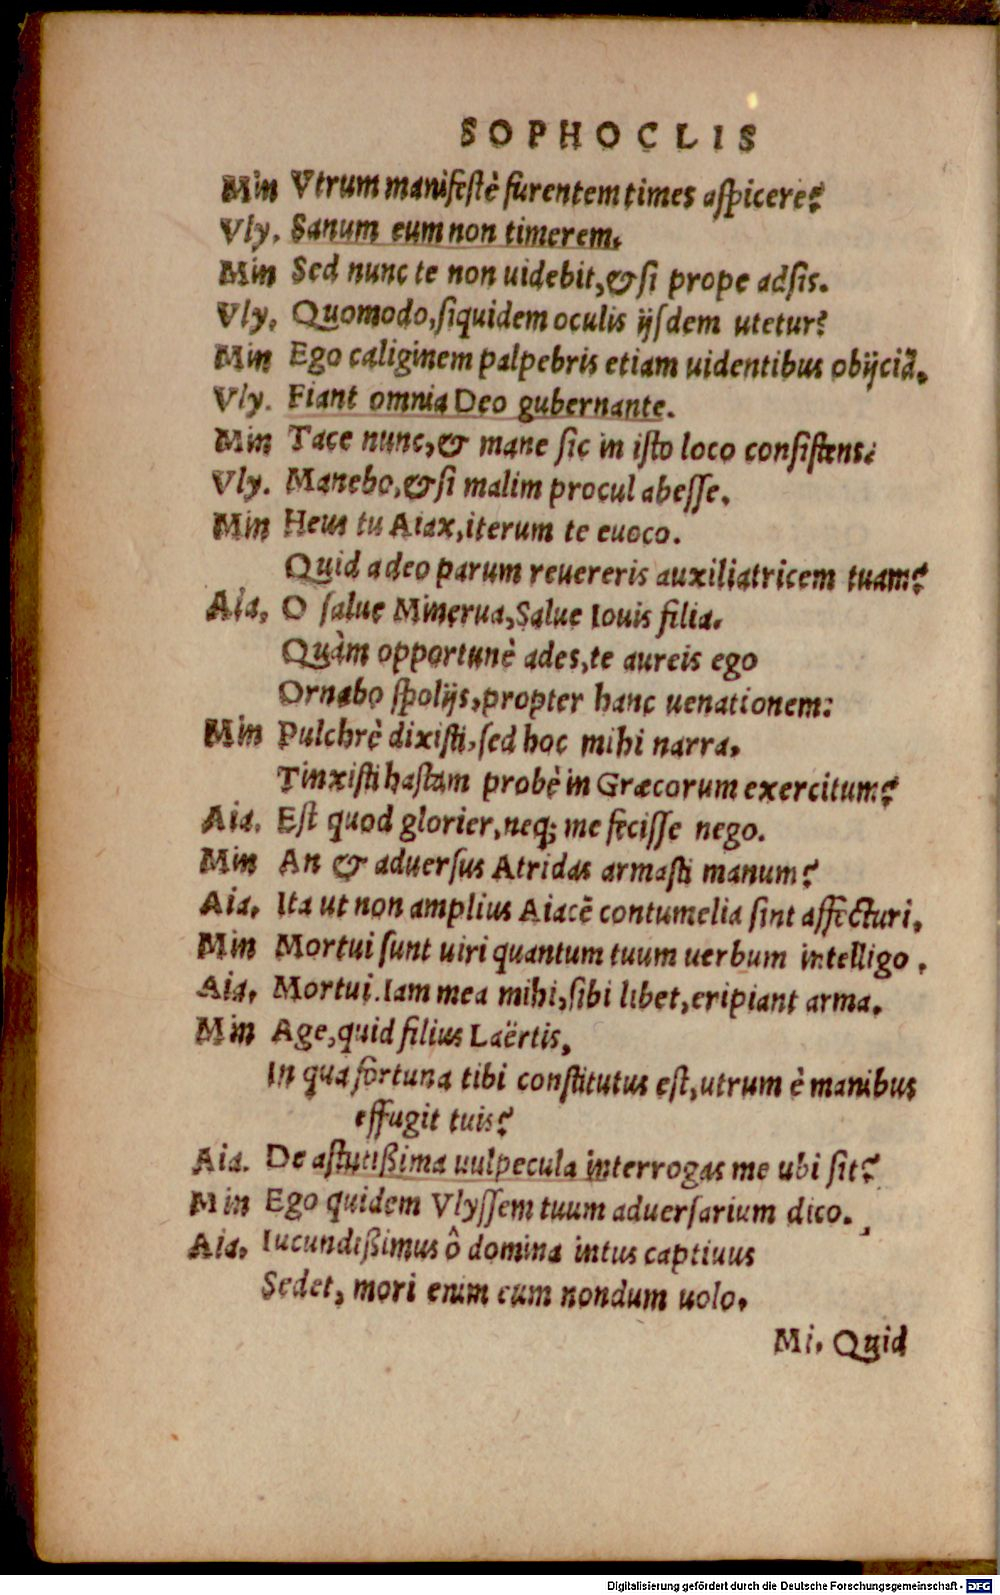 SOPHOCLIS
Min Vtrum manifestè furentem times aspicere?
Vly. Sanum eum non timerem.
Min Sed nunc te non uidebit, & si prope adsis.
Vly. Quomodo, siquidem oculis ijsdem utetur?
Min Ego caliginem palpebris etiam uidentibus obijciã.
Vly. Fiant omnia Deo gubernante.
Min Tace nunc, & mane sic in isto loco consistens.
Vly. Manebo, & si malim procul abesse.
Min Heus tu Aiax, iterum te euoco.
Quid adeo parum reuereris auxiliatricem tuam?
Aia. O salue Minerua, Salue Iouis filia.
Quàm opportunè ades, te aureis ego
Ornabo spolijs, propter hanc uenationem:
Min Pulchrè dixisti, sed hoc mihi narra.
Tinxisti hastam probè in Græcorum exercitum?
Aia. Est quod glorier, neq; me fecisse nego.
Min An & aduersus Atridas armasti manum?
Aia. Ita ut non amplius Aiacẽ contumelia sint affecturi.
Min Mortui sunt uiri quantum tuum uerbum intelligo.
Aia. Mortui. Iam mea mihi, sibi libet, eripiant arma.
Min Age, quid filius Laërtis,
In qua fortuna tibi constitutus est, utrum è manibus
effugit tuis?
Aia. De astutißima uulpecula interrogas me ubi sit?
Min Ego quidem Vlyssem tuum aduersarium dico.
Aia. Iucundißimus ô domina intus captiuus
Sedet, mori enim eum nondum uolo.
Mi. Quid
Digitalisierung gefördert durch die Deutsche Forschungsgemeinschaft - DFG